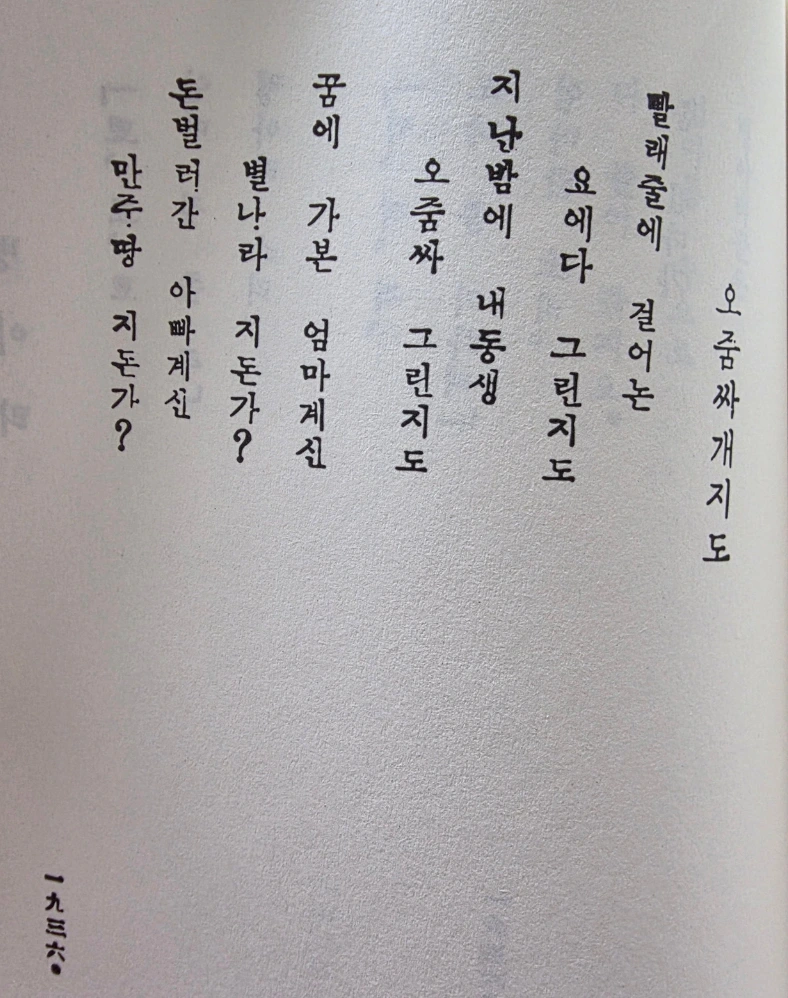 오줌싸개지도
빨래줄에 걸어논
요에다 그린지도
지난밤에 내동생
오줌싸 그린지도
꿈에 가본 엄마계신
별나라 지돈가?
돈벌러간 아빠계신
만주땅 지돈가?
一九三六.